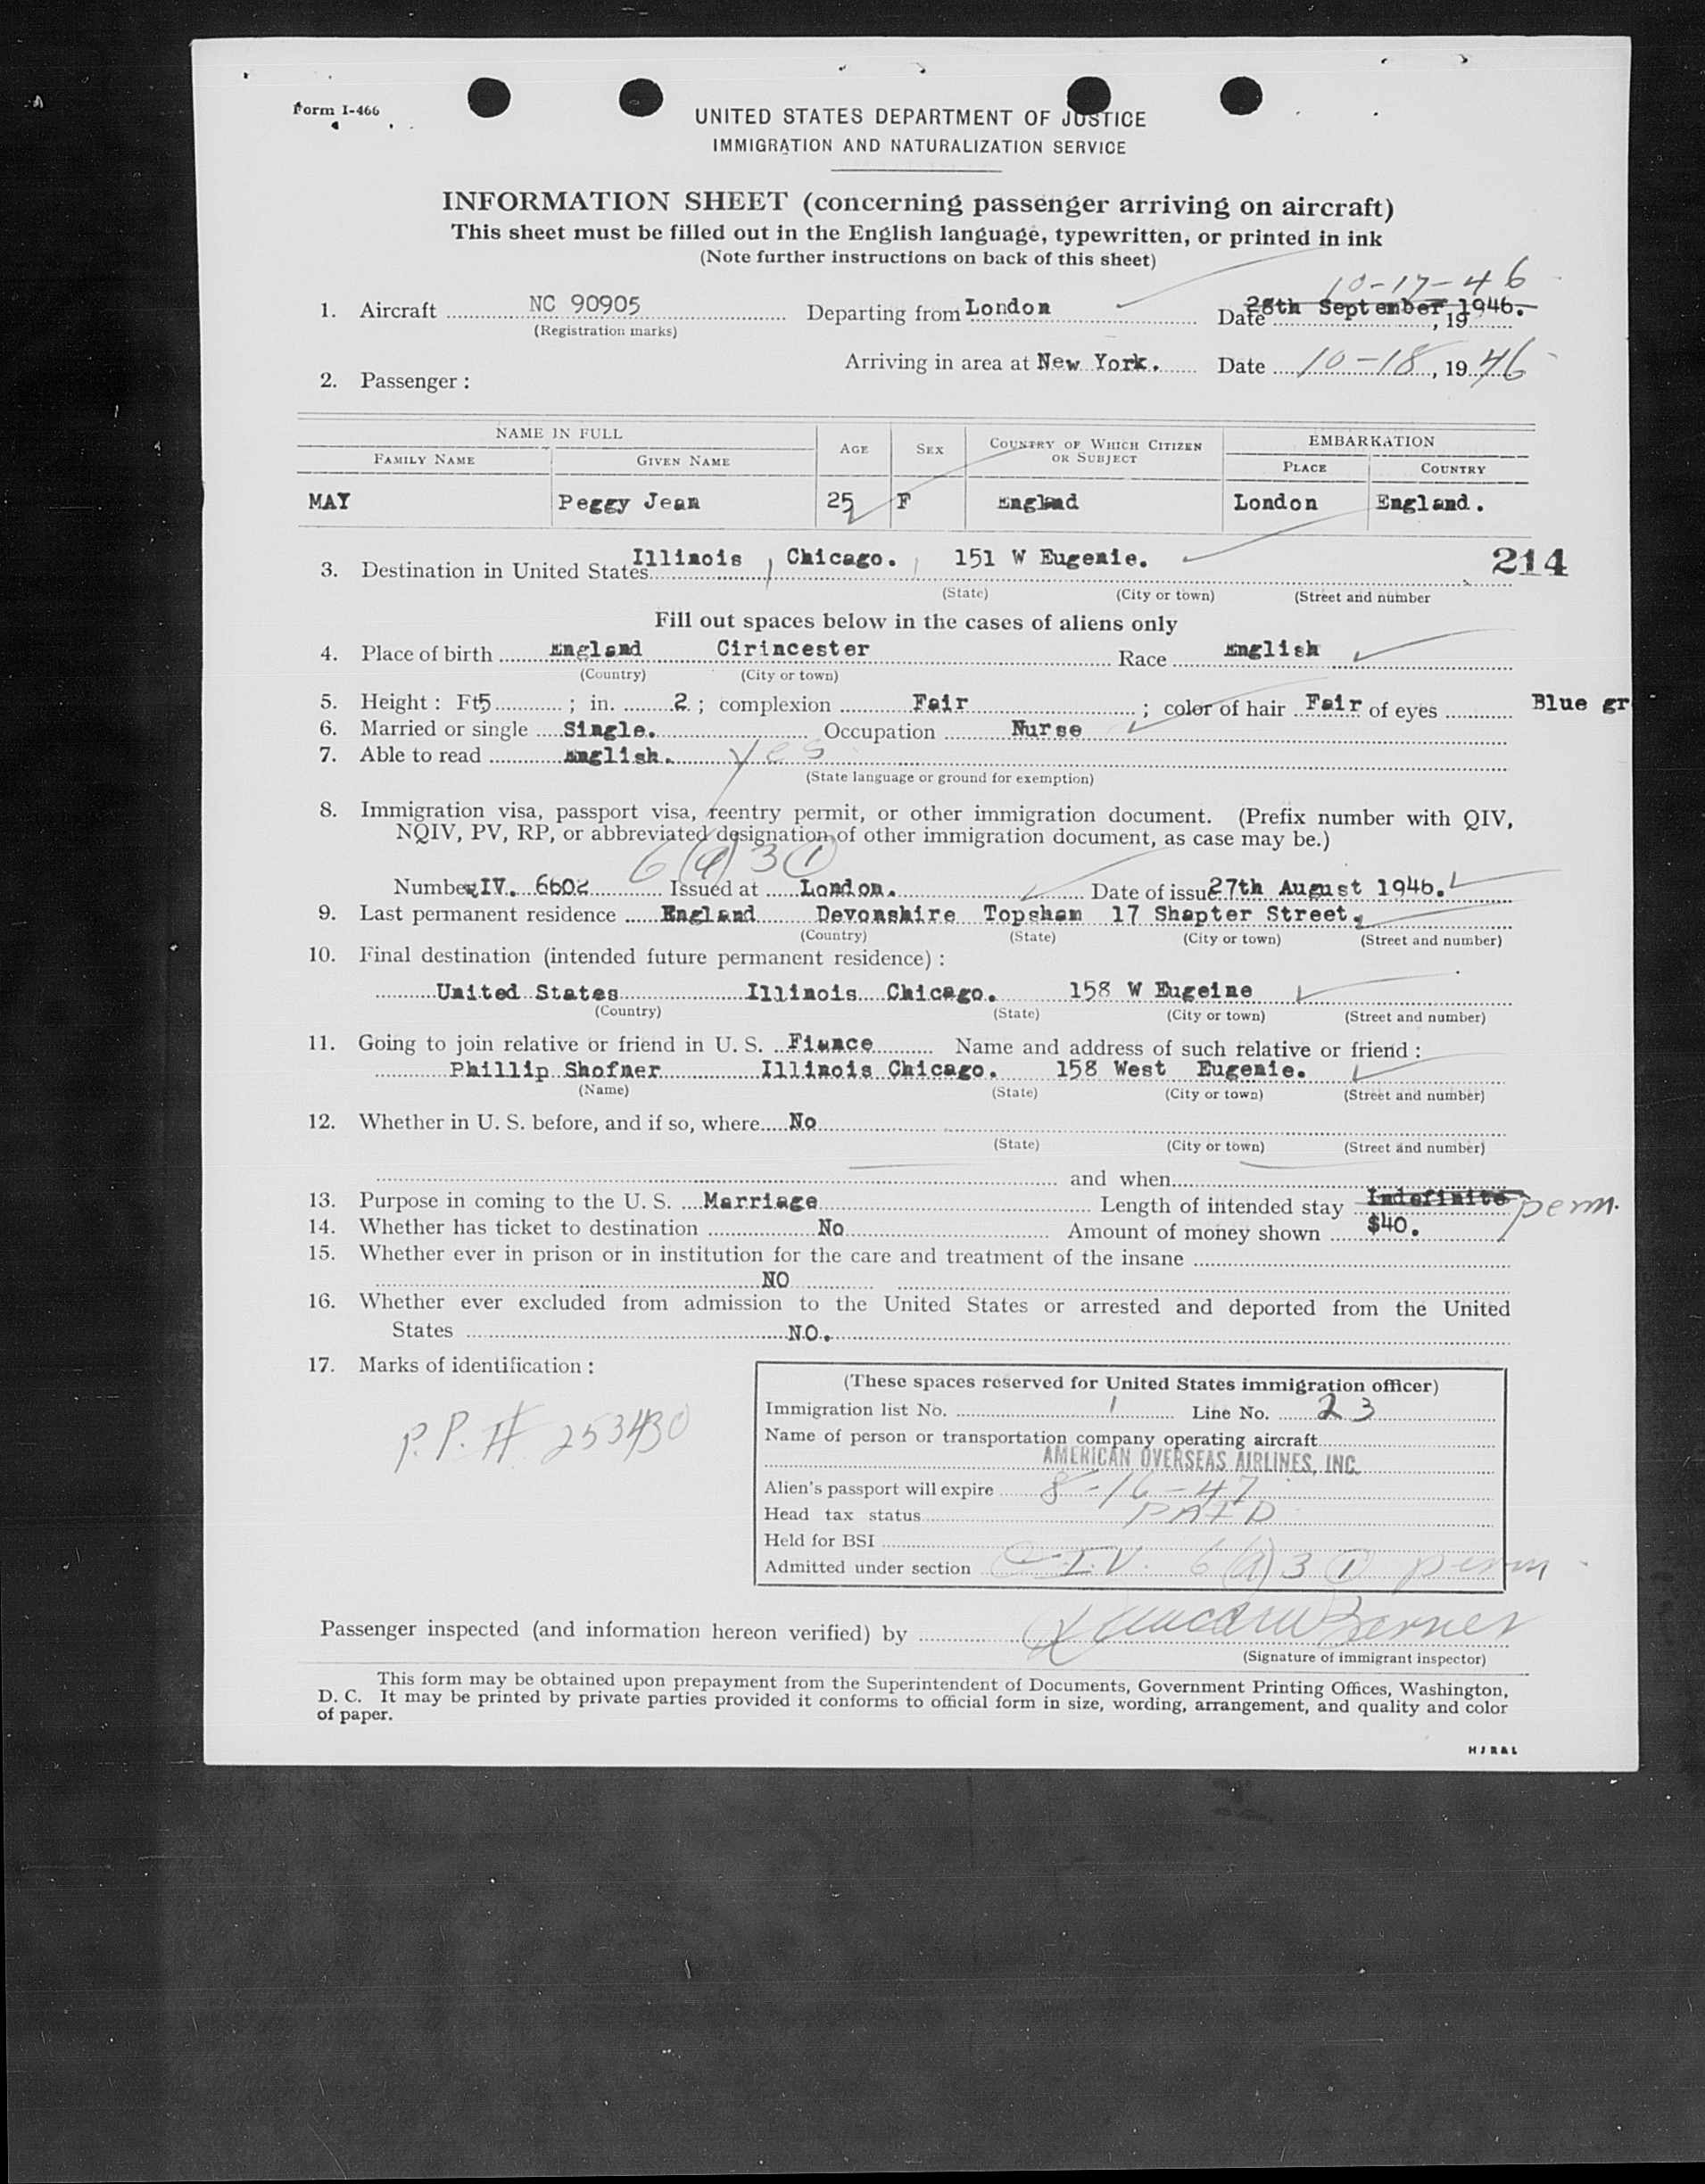 Form I-466
UNITED STATES DEPARTMENT OF JUSTICE
IMMIGRATION AND NATURALIZATION SERVICE
INFORMATION SHEET (concerning passenger arriving on aircraft)
This sheet must be filled out in the English language, typewritten, or printed in ink
(Note further instructions on back of this sheet)
10-17-46
1. Aircraft NC 90905 Departing from London Date 28th September, 1946. , 19
(Registration marks)
Arriving in area at New York. Date 10-18, 1946
2. Passenger :
NAME IN FULL AGE SEX COUNTRY OF WHICH CITIZEN OR SUBJECT EMBARKATION
FAMILY NAME GIVEN NAME PLACE COUNTRY
MAY Peggy Jean 25 F England London England.
3. Destination in United States Illinois , Chicago. , 151 W Eugenie. 214
(State) (City or town) (Street and number
Fill out spaces below in the cases of aliens only
4. Place of birth England Cirincester Race English
(Country) (City or town)
5. Height : Ft 5 ; in. 2 ; complexion Fair ; color of hair Fair of eyes Blue gr
6. Married or single Single. Occupation Nurse
7. Able to read English. yes
(State language or ground for exemption)
8. Immigration visa, passport visa, reentry permit, or other immigration document. (Prefix number with QIV,
NQIV, PV, RP, or abbreviated designation of other immigration document, as case may be.)
6 (a) 3 (1)
Number QIV. 6602 Issued at London. Date of issue 27th August 1946.
9. Last permanent residence England Devonshire Topsham 17 Shapter Street.
(Country) (State) (City or town) (Street and number)
10. Final destination (intended future permanent residence) :
United States Illinois Chicago. 158 W Eugeine
(Country) (State) (City or town) (Street and number)
11. Going to join relative or friend in U. S. Fiance Name and address of such relative or friend :
Phillip Shofner Illinois Chicago. 158 West Eugenie.
(Name) (State) (City or town) (Street and number)
12. Whether in U. S. before, and if so, where No
(State) (City or town) (Street and number)
and when
13. Purpose in coming to the U. S. Marriage Length of intended stay Indefinite perm.
14. Whether has ticket to destination No Amount of money shown $40.
15. Whether ever in prison or in institution for the care and treatment of the insane
NO
16. Whether ever excluded from admission to the United States or arrested and deported from the United
States NO.
17. Marks of identification :
P.P. # 253430
(These spaces reserved for United States immigration officer)
Immigration list No. 1 Line No. 23
Name of person or transportation company operating aircraft
AMERICAN OVERSEAS AIRLINES, INC.
Alien's passport will expire 8-16-47
Head tax status PAID
Held for BSI
Admitted under section I.V. 6 (a) 3 (1) perm
Passenger inspected (and information hereon verified) by
(Signature of immigrant inspector)
This form may be obtained upon prepayment from the Superintendent of Documents, Government Printing Offices, Washington,
D. C. It may be printed by private parties provided it conforms to official form in size, wording, arrangement, and quality and color
of paper.
HJR&L